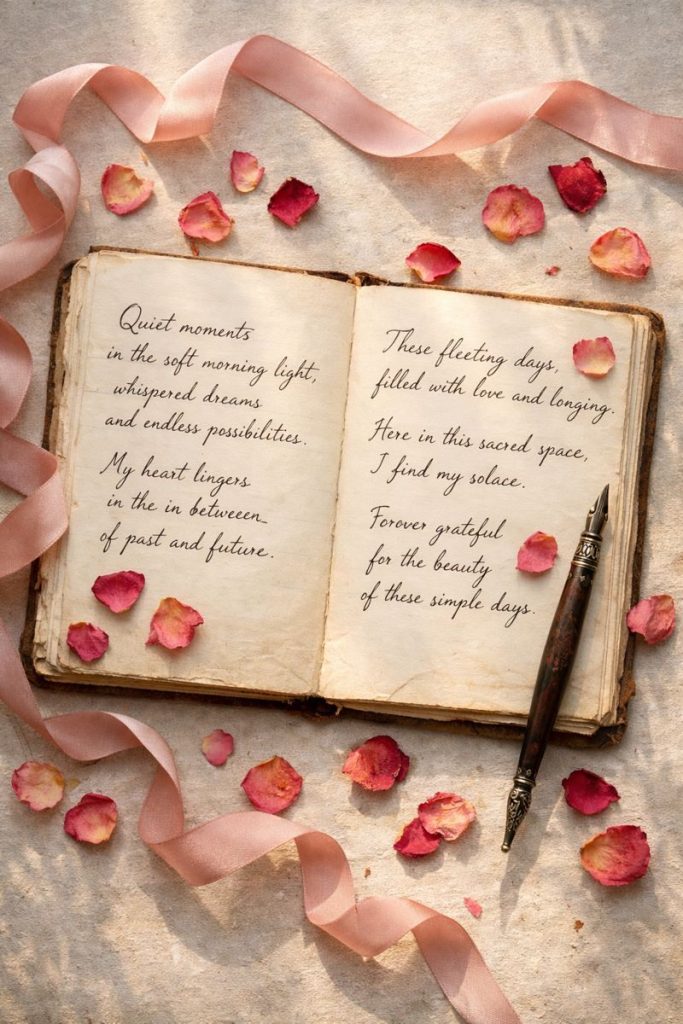 Quiet moments
in the soft morning light,
whispered dreams
and endless possibilities.
My heart lingers
in the in betweeen_
of past and future.
These fleeting days,
filled with love and longing.
Here in this sacred space,
I find my solace.
Forover grateful
for the beauty
of these simple days.